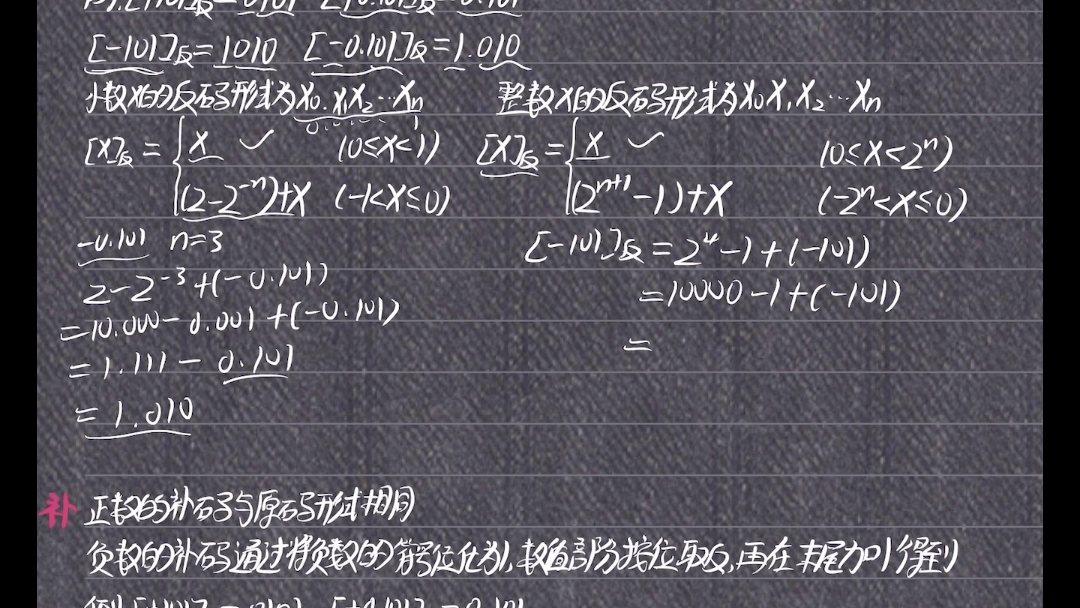 [-101]反=1010 [-0.101]反=1.010
小数X的反码形式为X₀.X₁X₂…Xₙ 整数X的反码形式为X₀X₁X₂…Xₙ
[X]反={X ✓ (0≤X<1) [X]反={X ✓ (0≤X<2ⁿ)
(2-2⁻ⁿ)+X (-1<X≤0) (2ⁿ⁺¹-1)+X (-2ⁿ<X≤0)
-0.101 n=3 [-101]反=2⁴-1+(-101)
2-2⁻³+(-0.101)
=10.000-0.001+(-0.101) =10000-1+(-101)
=1.111-0.101 =
=1.010
补 正数的补码与原码形式相同
负数的补码通过将负数的符号位化为1,数值部分按位取反,再在末尾加1得到